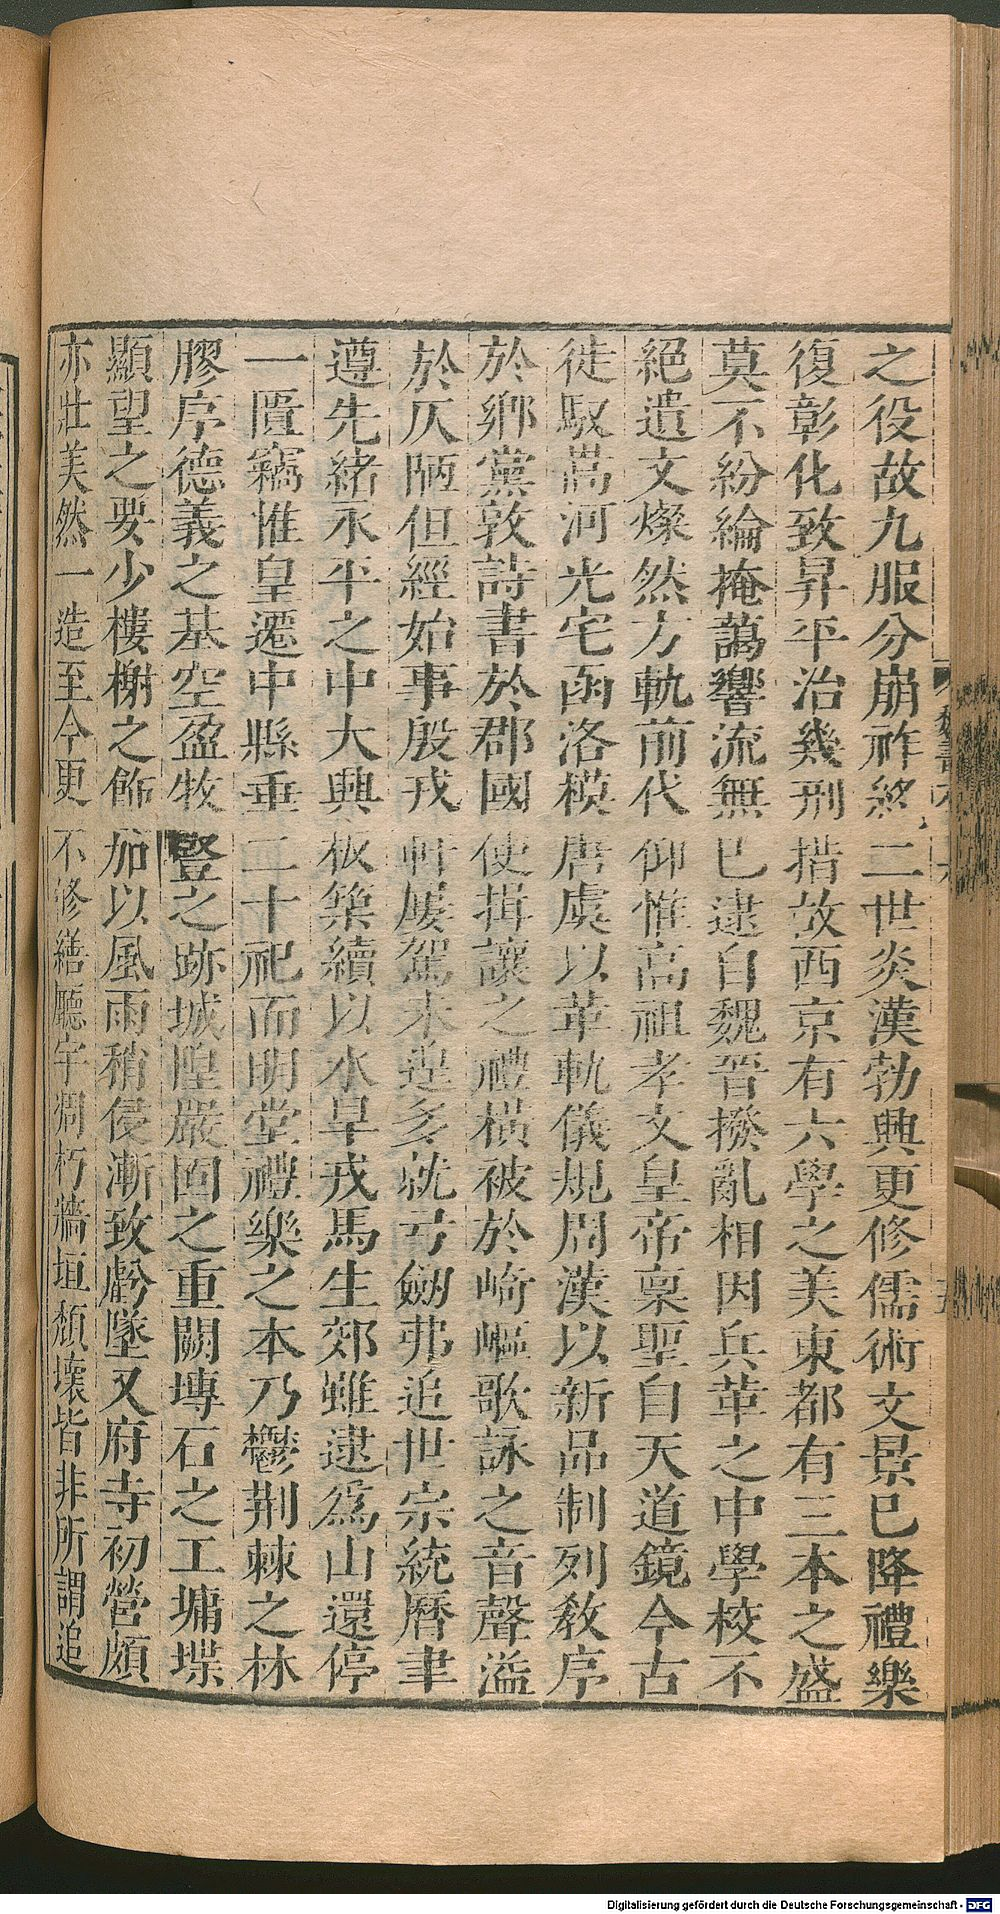 之役故九服分崩祚終二世炎漢勃興更修儒術文景已降禮樂
復彰化致昇平治幾刑措故西京有六學之美東都有三本之盛
莫不紛綸掩藹響流無已逮自魏晉撥亂相因兵革之中學校不
絕遺文燦然方軌前代仰惟高祖孝文皇帝稟聖自天道鏡今古
徙馭嵩河光宅函洛模唐虞以革軌儀規周漢以新品制列教序
於鄉黨敦詩書於郡國使揖讓之禮橫被於崎嶇歌詠之音聲溢
於仄陋但經始事殷戎軒屢駕未遑多就弓劒弗追世宗統曆聿
遵先緒永平之中大興板築續以水旱戎馬生郊雖逮爲山還停
一匱竊惟皇遷中縣垂二十祀而明堂禮樂之本乃鬱荆棘之林
膠序德義之基空盈牧豎之跡城隍嚴固之重闕塼石之工墉堞
顯望之要少樓榭之飾加以風雨稍侵漸致虧墜又府寺初營頗
亦壯美然一造至今更不修繕廳宇凋朽牆垣頹壞皆非所謂追
Digitalisierung gefördert durch die Deutsche Forschungsgemeinschaft - DFG